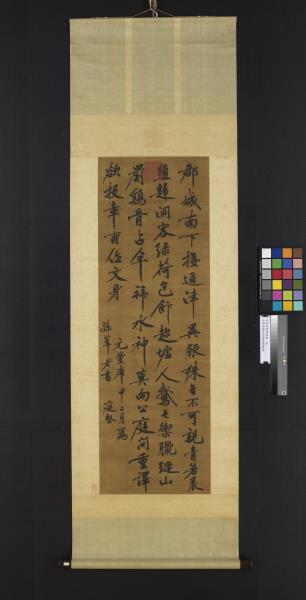 郡城南下接通津異服殊音不可親青箬裹
鹽歸洞客綠荷包飯趁墟人鵝毛禦臘縫山
罽鷄骨占年拜水神莫向公庭問重譯
欲投章甫作文身
元豐庚申二月爲
孫莘老書 庭堅